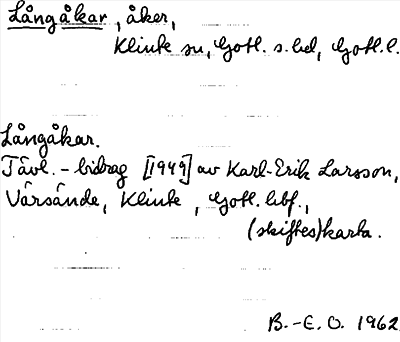 Långåkar, åker,
Klinte sn, Gotl. s. hd, Gotl. l.
Långåkar.
Tävl.-bidrag [1949] av Karl-Erik Larsson,
Värsände, Klinte, Gotl. hbf.,
(skiftes)karta.
B.-E. O. 1962